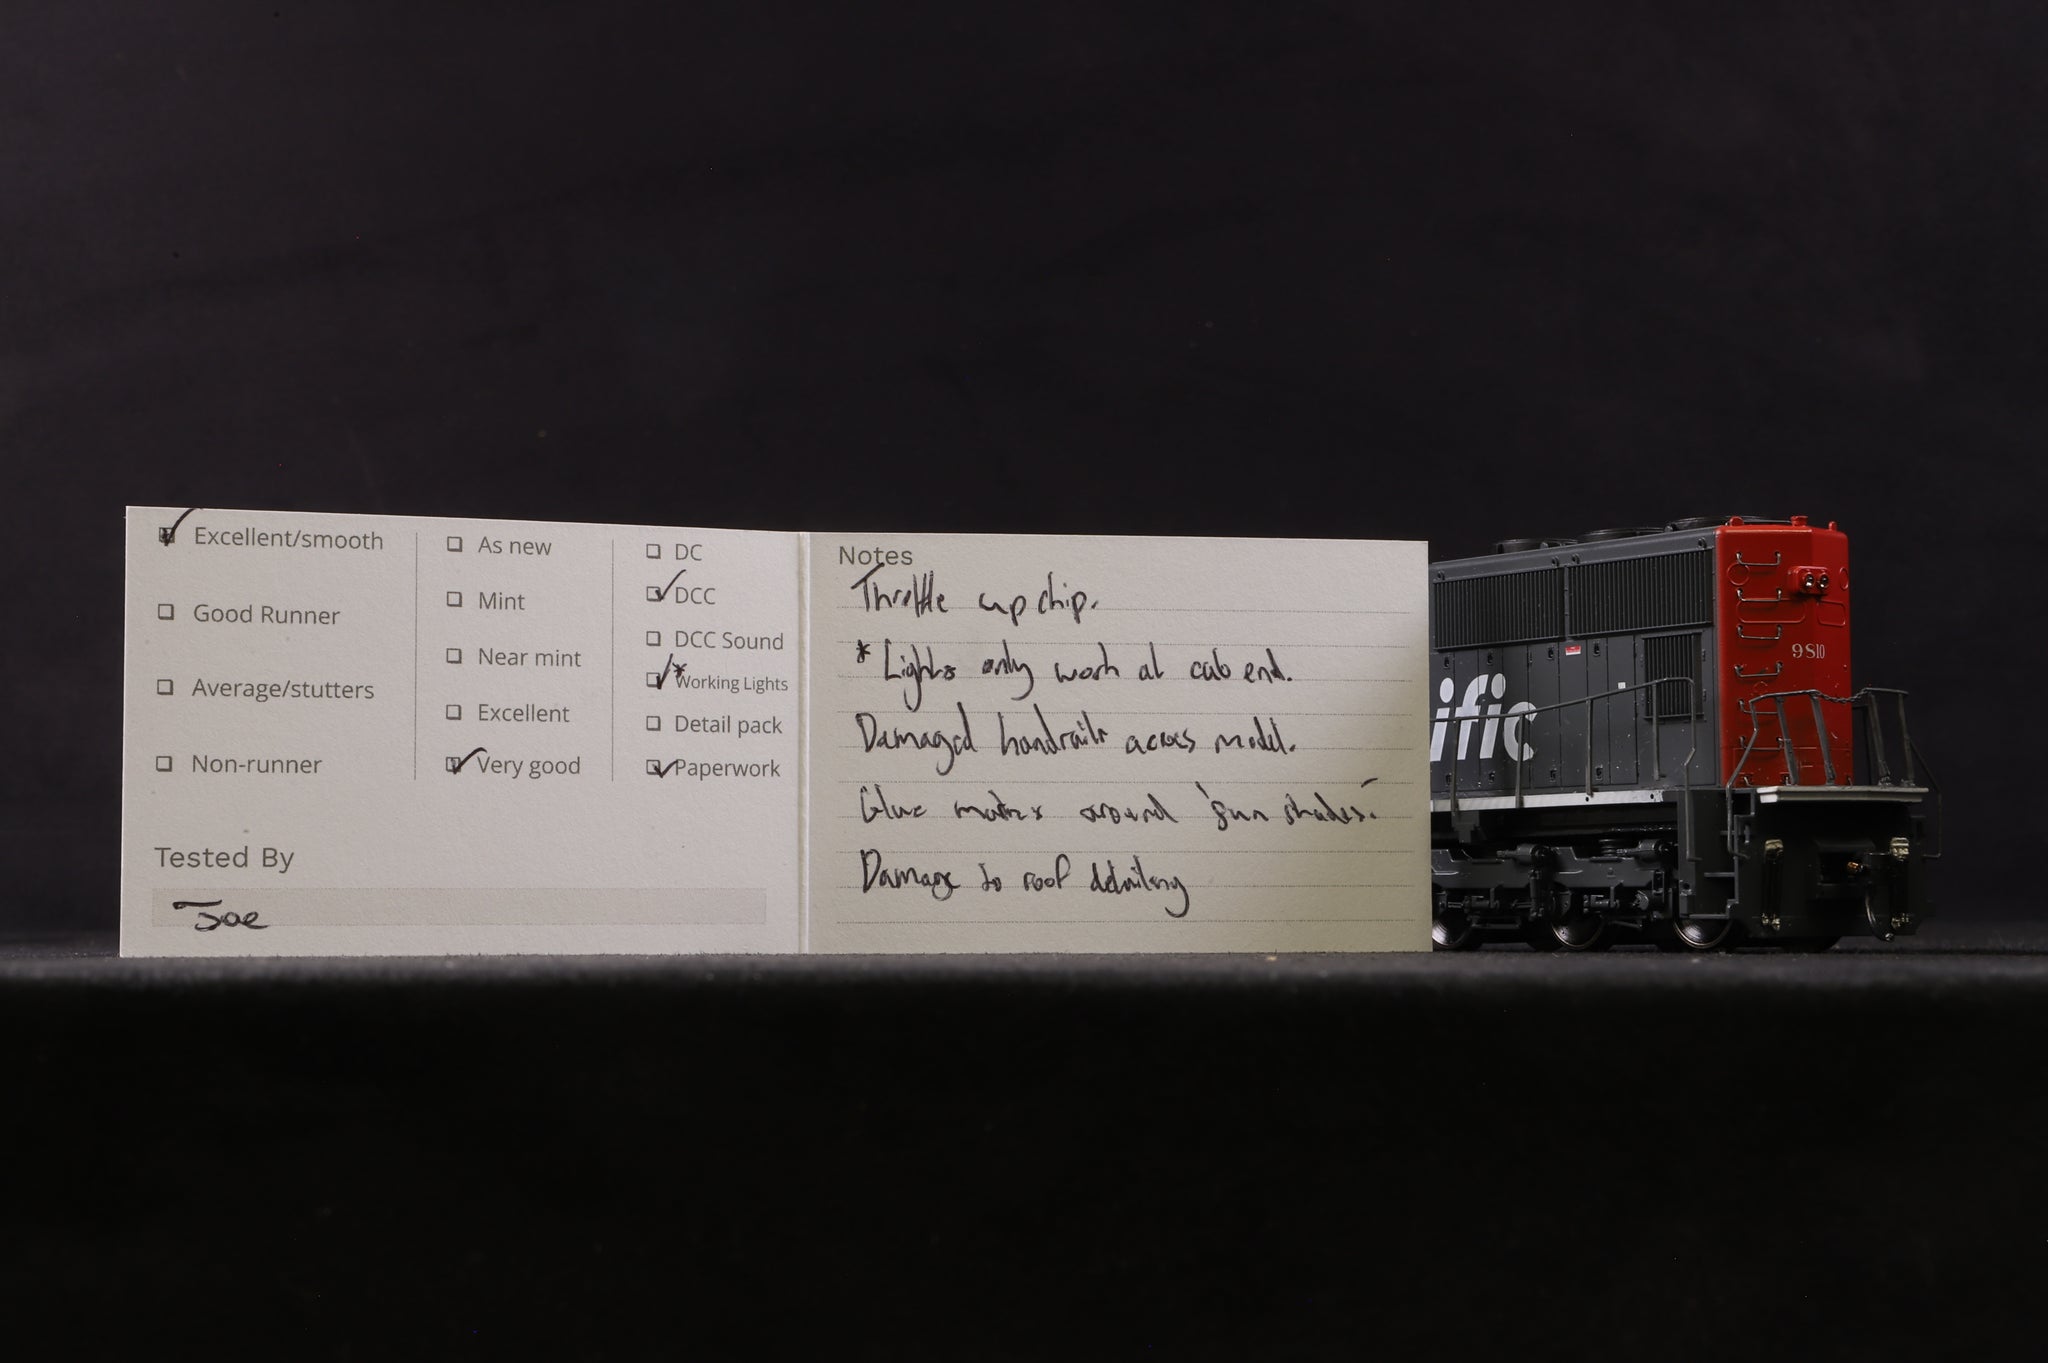 Excellent/smooth
Good Runner
Average/stutters
Non-runner
As new
Mint
Near mint
Excellent
Very good
DC
DCC
DCC Sound
*
Working Lights
Detail pack
Paperwork
Tested By
Joe
Notes
Throttle up chip.
* Lights only work at cab end.
Damaged handrails across model.
Glue marks around 'sun shades.'
Damage to roof detailing
ific
9810